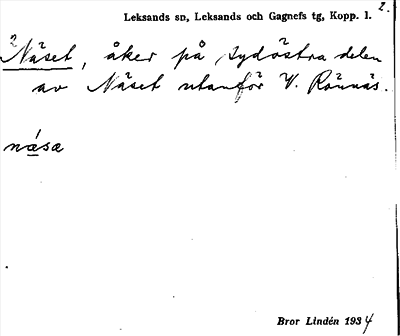 2.
Leksands sn, Leksands och Gagnefs tg, Kopp. l.
2 Näset, åker på sydöstra delen
av Näset utanför V. Rönnäs.
næsæ
Bror Lindén 1934